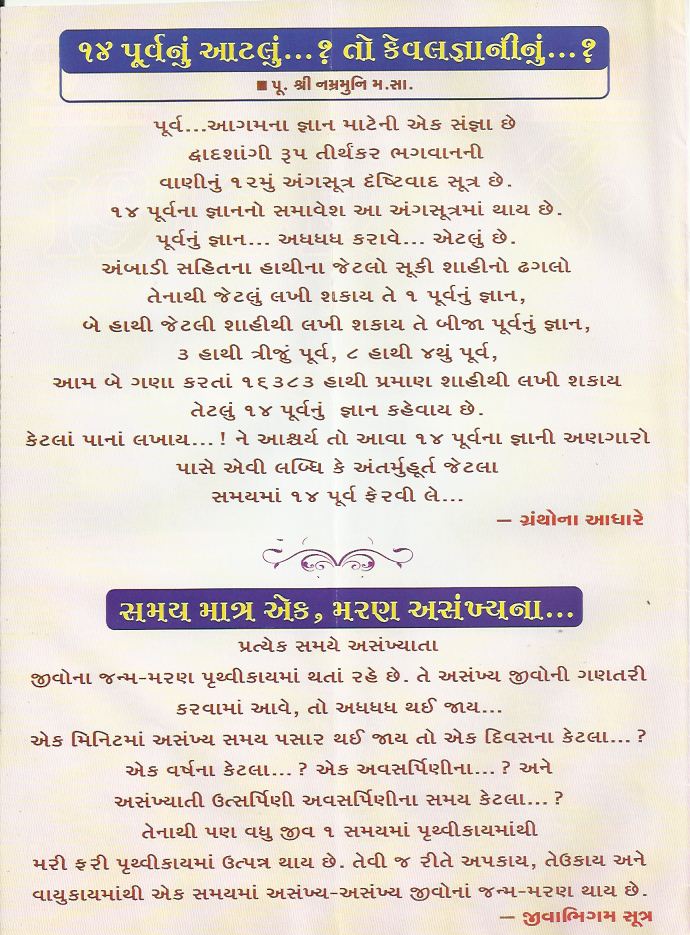 ૧૪ પૂર્વનું આટલું...? તો કેવલજ્ઞાનીનું...?
■ પૂ. શ્રી નમ્રમુનિ મ.સા.
પૂર્વ...આગમના જ્ઞાન માટેની એક સંજ્ઞા છે
દ્વાદશાંગી રૂપ તીર્થંકર ભગવાનની
વાણીનું ૧૨મું અંગસૂત્ર દૃષ્ટિવાદ સૂત્ર છે.
૧૪ પૂર્વના જ્ઞાનનો સમાવેશ આ અંગસૂત્રમાં થાય છે.
પૂર્વનું જ્ઞાન... અધધધ કરાવે... એટલું છે.
અંબાડી સહિતના હાથીના જેટલો સૂકી શાહીનો ઢગલો
તેનાથી જેટલું લખી શકાય તે ૧ પૂર્વનું જ્ઞાન,
બે હાથી જેટલી શાહીથી લખી શકાય તે બીજા પૂર્વનું જ્ઞાન,
૩ હાથી ત્રીજું પૂર્વ, ૮ હાથી ૪થું પૂર્વ,
આમ બે ગણા કરતાં ૧૬૩૮૩ હાથી પ્રમાણ શાહીથી લખી શકાય
તેટલું ૧૪ પૂર્વનું જ્ઞાન કહેવાય છે.
કેટલાં પાનાં લખાય...! ને આશ્ચર્ય તો આવા ૧૪ પૂર્વના જ્ઞાની અણગારો
પાસે એવી લબ્ધિ કે અંતર્મુહૂર્ત જેટલા
સમયમાં ૧૪ પૂર્વ ફેરવી લે...
– ગ્રંથોના આધારે
સમય માત્ર એક, મરણ અસંખ્યના...
પ્રત્યેક સમયે અસંખ્યાતા
જીવોના જન્મ-મરણ પૃથ્વીકાયમાં થતાં રહે છે. તે અસંખ્ય જીવોની ગણતરી
કરવામાં આવે, તો અધધધ થઈ જાય...
એક મિનિટમાં અસંખ્ય સમય પસાર થઈ જાય તો એક દિવસના કેટલા...?
એક વર્ષના કેટલા...? એક અવસર્પિણીના...? અને
અસંખ્યાતી ઉત્સર્પિણી અવસર્પિણીના સમય કેટલા...?
તેનાથી પણ વધુ જીવ ૧ સમયમાં પૃથ્વીકાયમાંથી
મરી ફરી પૃથ્વીકાયમાં ઉત્પન્ન થાય છે. તેવી જ રીતે અપકાય, તેઉકાય અને
વાયુકાયમાંથી એક સમયમાં અસંખ્ય-અસંખ્ય જીવોનાં જન્મ-મરણ થાય છે.
– જીવાભિગમ સૂત્ર